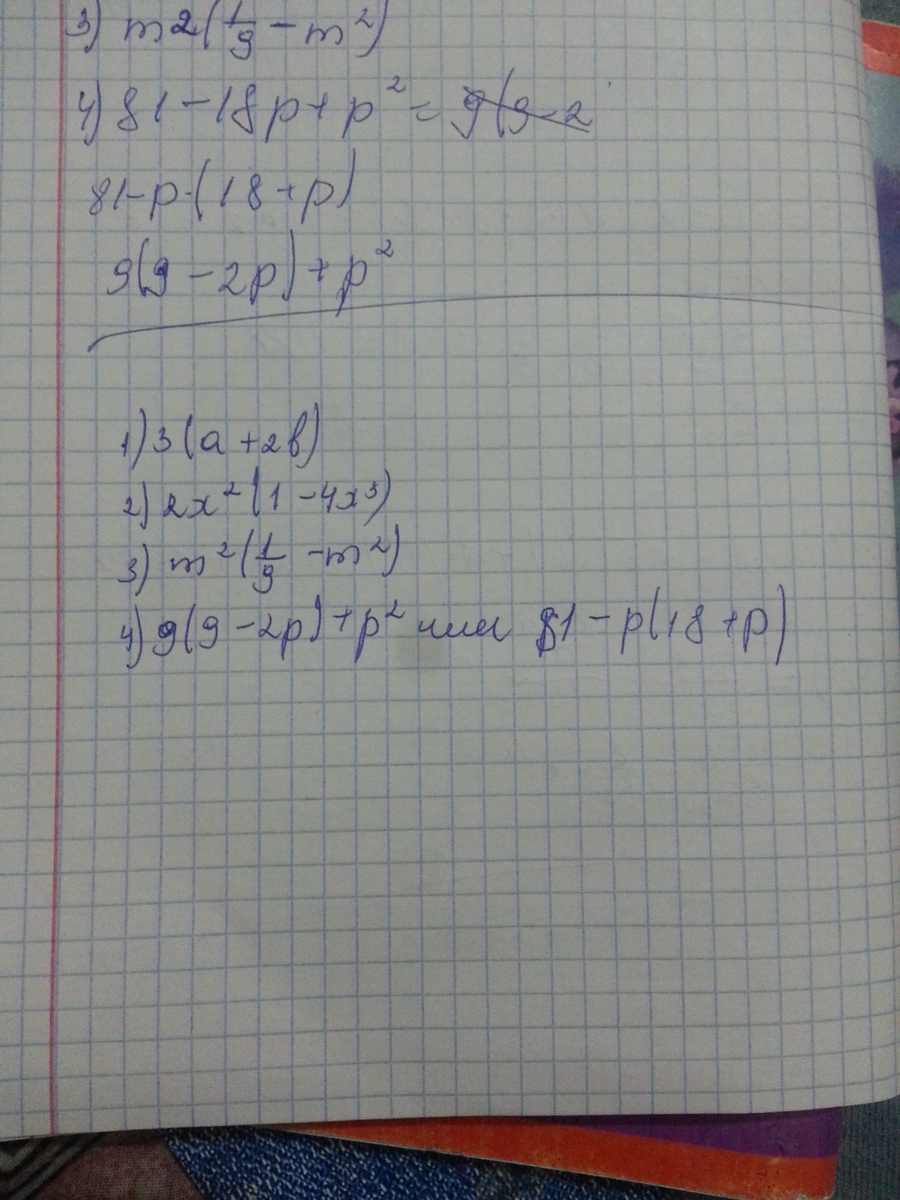 3) m2(1/9 - m²)
4) 81 - 18p + p² = 9(9-2
81-p·(18+p)
9(9 - 2p) + p²
1) 3(a + 2b)
2) 2x² (1 - 4x³)
3) m² (1/9 - m²)
4) 9(9 - 2p) + p² или 81 - p(18 + p)